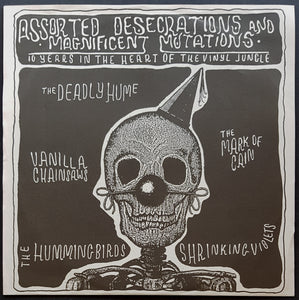 ASSORTED DESECRATIONS AND
· MAGNIFICENT MUTATIONS ·
10 YEARS IN THE HEART OF THE VINYL JUNGLE
THE DEADLY HUME
THE MARK OF CAIN
VANILLA CHAINSAWS
THE HUMMINGBIRDS
SHRINKING VIOLETS